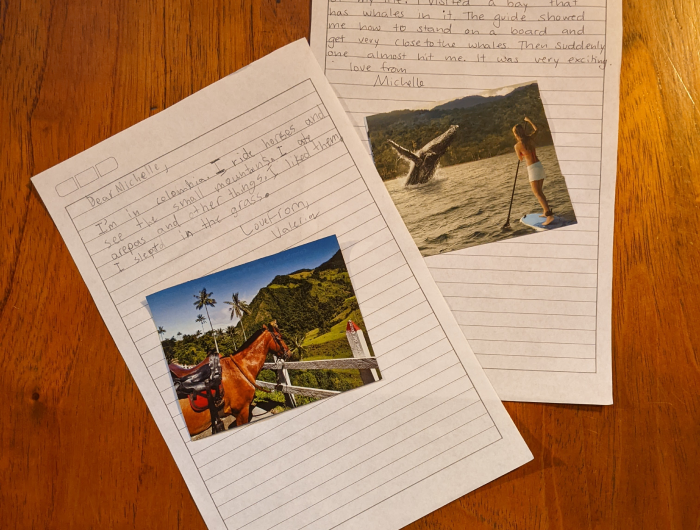 of my life. I visited a bay that
has whales in it. The guide showed
me how to stand on a board and
get very close to the whales. Then suddenly
one almost hit me. It was very exciting.
love from
Michelle
Dear Michelle,
I'm in colombia. I ride horses and
see the small mountens. I ate
arepas and other things. I liked them.
I slept in the grass.
Love From,